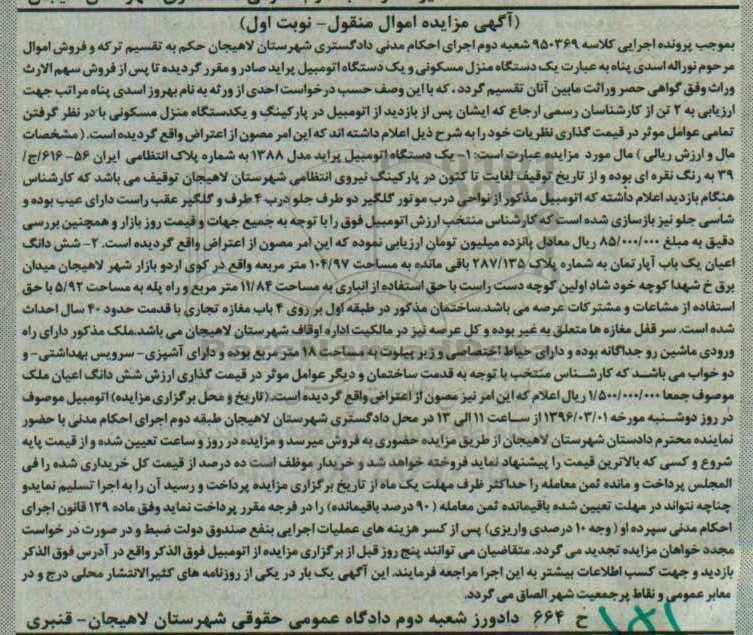 (آگهی مزایده اموال منقول- نوبت اول)
بموجب پرونده اجرایی کلاسه ۹۵۰۳۶۹ شعبه دوم اجرای احکام مدنی دادگستری شهرستان لاهیجان حکم به تقسیم ترکه و فروش اموال
مرحوم نوراله اسدی پناه به عبارت یک دستگاه منزل مسکونی و یک دستگاه اتومبیل پراید صادر و مقرر گردیده تا پس از فروش سهم الارث
وراث وفق گواهی حصر وراثت مابین آنان تقسیم گردد، که با این وصف حسب درخواست احدی از ورثه به نام بهروز اسدی پناه مراتب جهت
ارزیابی به ۲ تن از کارشناسان رسمی ارجاع که ایشان پس از بازدید از اتومبیل در پارکینگ و یکدستگاه منزل مسکونی با در نظر گرفتن
تمامی عوامل موثر در قیمت گذاری نظریات خود را به شرح ذیل اعلام داشته اند که این امر مصون از اعتراض واقع گردیده است. (مشخصات
مال و ارزش ریالی) مال مورد مزایده عبارت است: ۱- یک دستگاه اتومبیل پراید مدل ۱۳۸۸ به شماره پلاک انتظامی ایران ۵۶- ۶۱۶/ج/
۳۹ به رنگ نقره ای بوده و از تاریخ توقیف لغایت تا کنون در پارکینگ نیروی انتظامی شهرستان لاهیجان توقیف می باشد که کارشناس
هنگام بازدید اعلام داشته که اتومبیل مذکور از نواحی درب موتور گلگیر دو طرف جلو درب ۴ طرف و گلگیر عقب راست دارای عیب بوده و
شاسی جلو نیز بازسازی شده است که کارشناس منتخب ارزش اتومبیل فوق را با توجه به جمیع جهات و قیمت روز بازار و همچنین بررسی
دقیق به مبلغ ۸۵/۰۰۰/۰۰۰ ریال معادل پانزده میلیون تومان ارزیابی نموده که این امر مصون از اعتراض واقع گردیده است. ۲- شش دانگ
اعیان یک باب آپارتمان به شماره پلاک ۲۸۷/۱۳۵ باقی مانده به مساحت ۱۰۴/۹۷ متر مربعه واقع در کوی اردو بازار شهر لاهیجان میدان
برق خ شهدا کوچه خود شاد اولین کوچه دست راست با حق استفاده از انباری به مساحت ۱۱/۸۴ متر مربع و راه پله به مساحت ۵/۹۲ با حق
استفاده از مشاعات و مشترکات عرصه می باشد.ساختمان مذکور در طبقه اول بر روی ۴ باب مغازه تجاری با قدمت حدود ۴۰ سال احداث
شده است. سر قفل مغازه ها متعلق به غیر بوده و کل عرصه نیز در مالکیت اداره اوقاف شهرستان لاهیجان می باشد.ملک مذکور دارای راه
ورودی ماشین رو جداگانه بوده و دارای حیاط اختصاصی و زیر پیلوت به مساحت ۱۸ متر مربع بوده و دارای آشپزی- سرویس بهداشتی- و
دو خواب می باشد که کارشناس منتخب با توجه به قدمت ساختمان و دیگر عوامل موثر در قیمت گذاری ارزش شش دانگ اعیان ملک
موصوف جمعا ۱/۵۰۰/۰۰۰/۰۰۰ ریال اعلام که این امر نیز مصون از اعتراض واقع گردیده است.(تاریخ و محل برگزاری مزایده) اتومبیل موصوف
در روز دوشنبه مورخه ۱۳۹۶/۰۳/۰۱ از ساعت ۱۱ الی ۱۳ در محل دادگستری شهرستان لاهیجان طبقه دوم اجرای احکام مدنی با حضور
نماینده محترم دادستان شهرستان لاهیجان از طریق مزایده حضوری به فروش میرسد و مزایده در روز و ساعت تعیین شده و از قیمت پایه
شروع و کسی که بالاترین قیمت را پیشنهاد نماید فروخته خواهد شد و خریدار موظف است ده درصد از قیمت کل خریداری شده را فی
المجلس پرداخت و مانده ثمن معامله را حداکثر ظرف مهلت یک ماه از تاریخ برگزاری مزایده پرداخت و رسید آن را به اجرا تسلیم نمایدو
چناچه نتواند در مهلت تعیین شده باقیمانده ثمن معامله (۹۰ درصد باقیمانده) را در فرجه مقرر پرداخت نماید وفق ماده ۱۲۹ قانون اجرای
احکام مدنی سپرده او (وجه ۱۰ درصدی واریزی) پس از کسر هزینه های عملیات اجرایی بنفع صندوق دولت ضبط و در صورت در خواست
مجدد خواهان مزایده تجدید می گردد. متقاضیان می توانند پنج روز قبل از برگزاری مزایده از اتومبیل فوق الذکر واقع در آدرس فوق الذکر
بازدید و جهت کسب اطلاعات بیشتر به این اجرا مراجعه فرمایند. این آگهی یک بار در یکی از روزنامه های کثیرالانتشار محلی درج و در
معابر عمومی و نقاط پرجمعیت شهر الصاق می گردد.
ح ۶۶۴ دادورز شعبه دوم دادگاه عمومی حقوقی شهرستان لاهیجان- قنبری